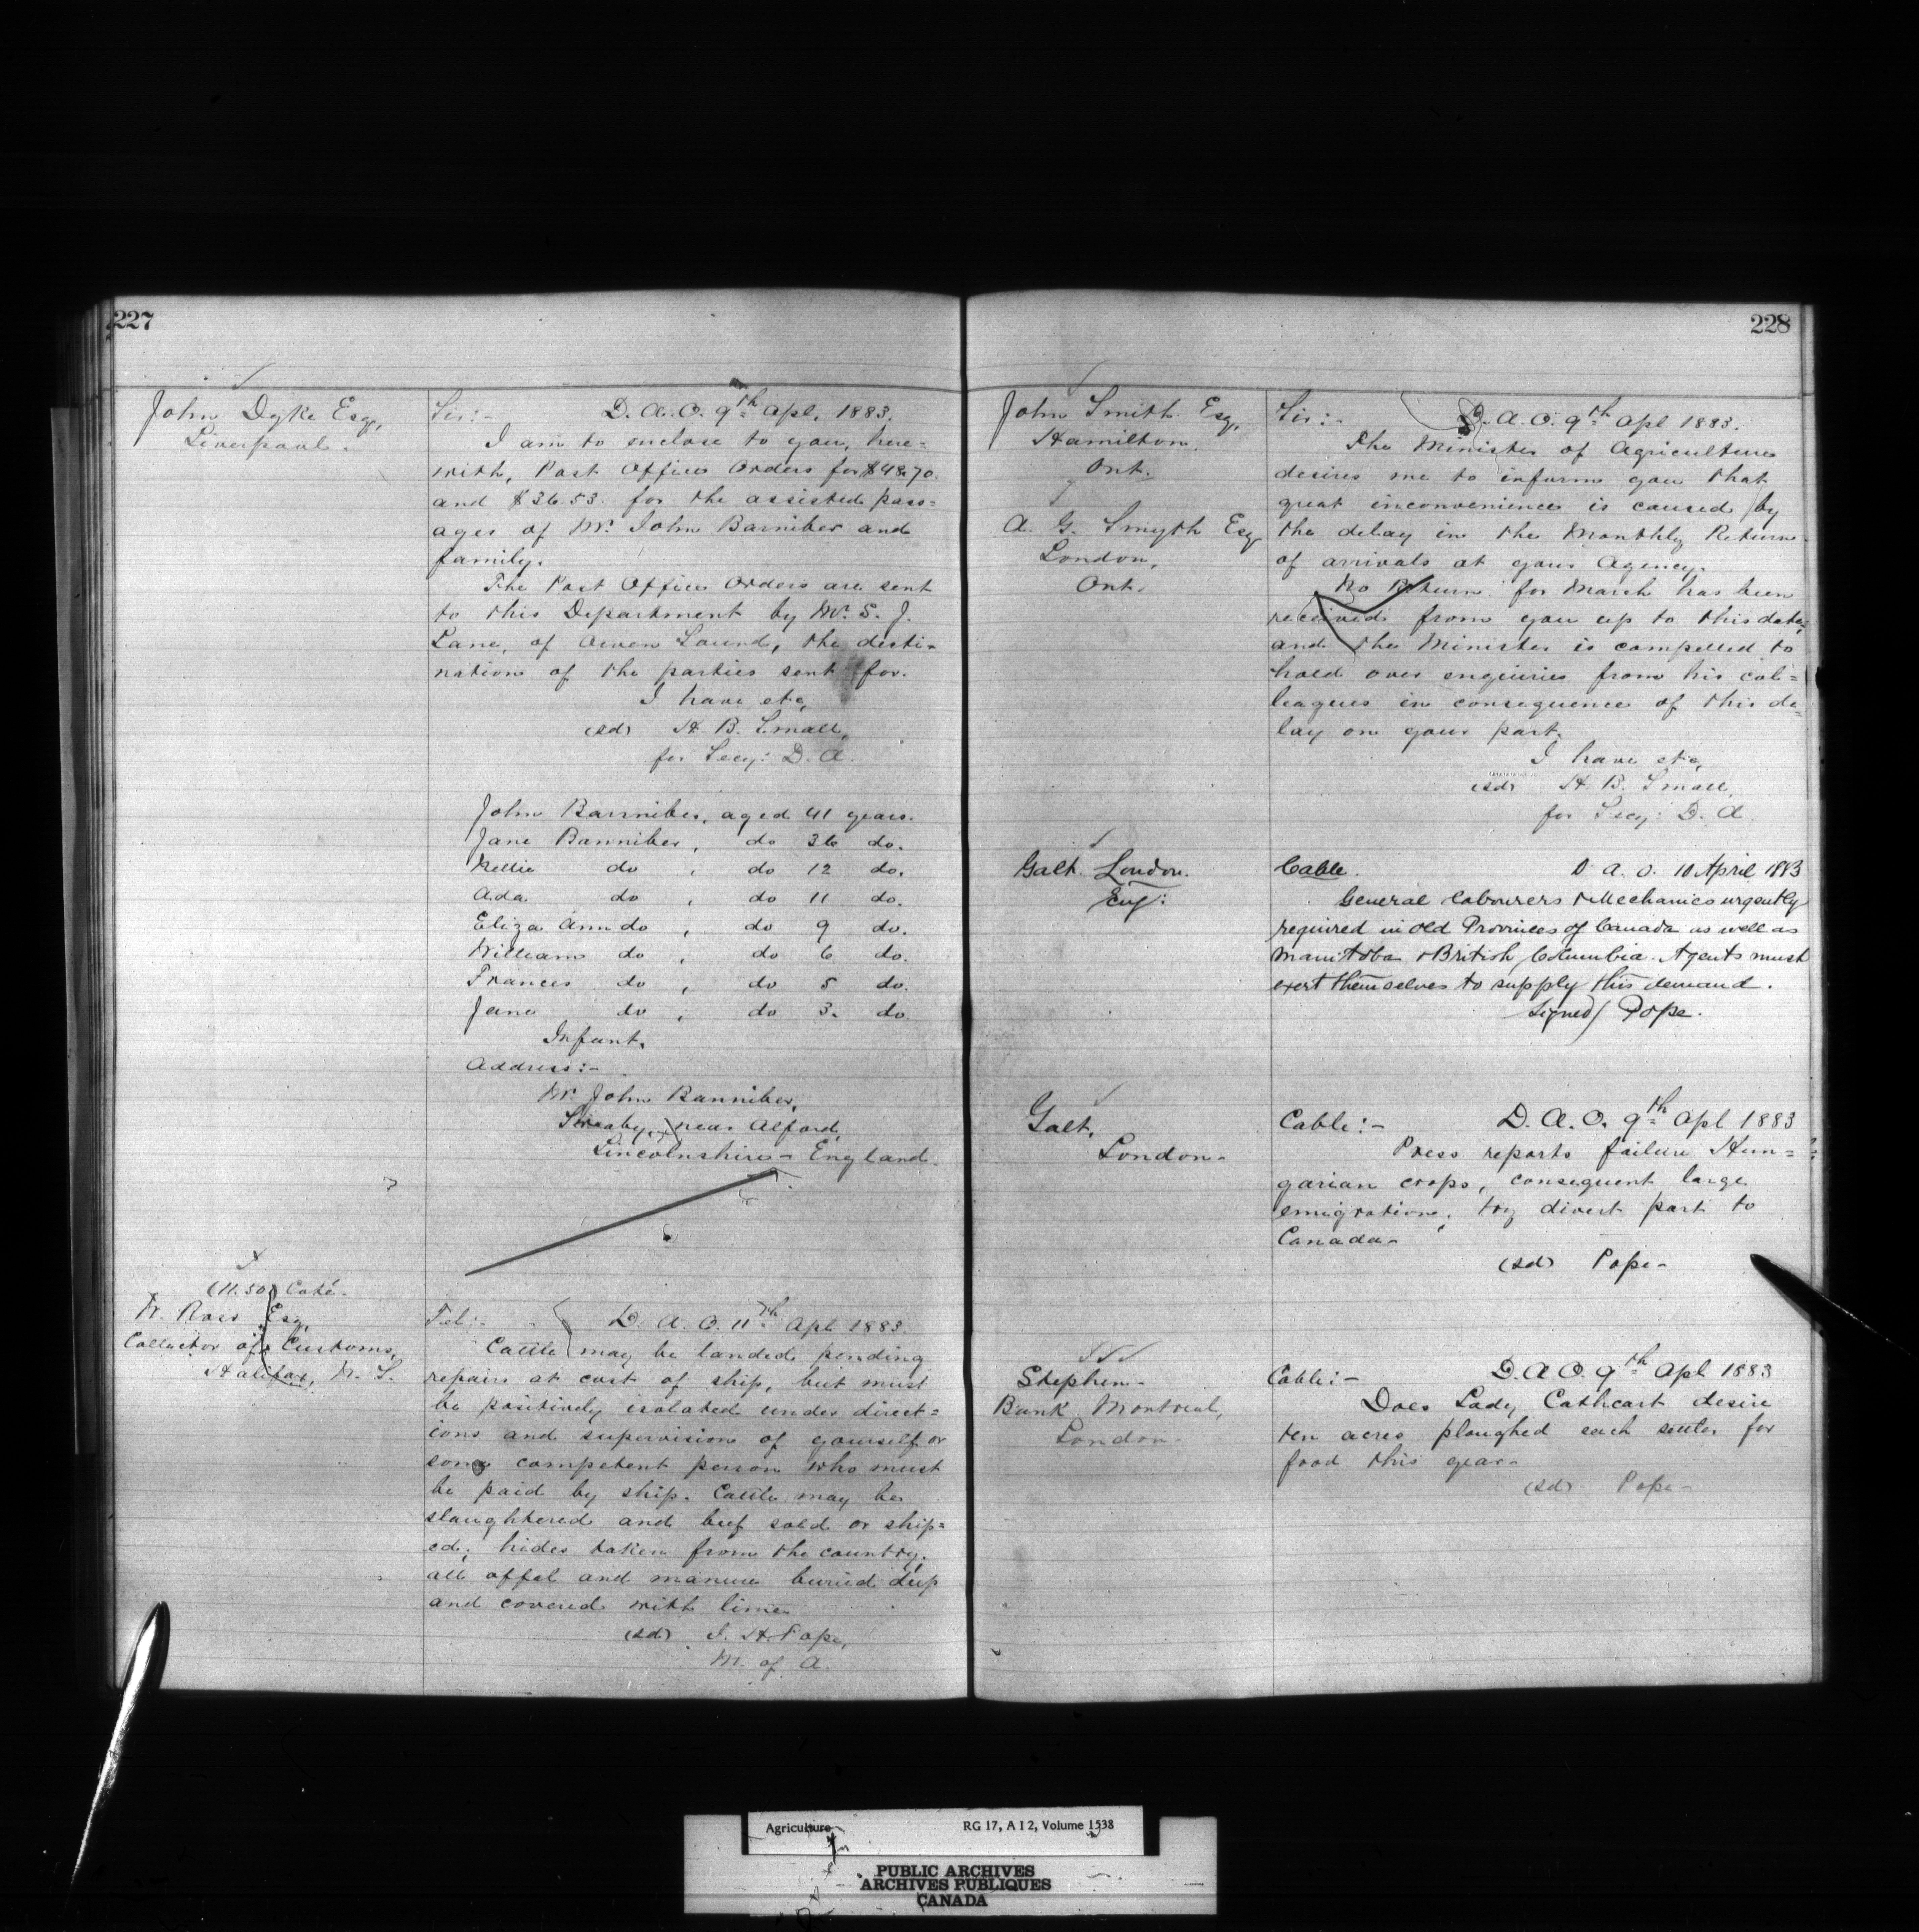 227
John Dyke Esq,
Liverpool.
Sir:- D. A. O. 9th Apl. 1883.
I am to enclose to you, here=
with, Post Office Orders for $48.70
and $36.53. for the assisted pass=
ages of Mr. John Barniber and
family.
The Post Office Orders are sent
to this Department by Mr. S. J.
Lane, of Owen Sound, the desti-
nation of the parties sent for.
I have etc,
(sd) H. B. Small,
for Secy: D. A.
John Banniber, aged 41 years.
Jane Banniber, do 36 do.
Nellie do , do 12 do.
Ada do , do 11 do.
Eliza Ann do , do 9 do.
William do , do 6 do.
Frances do , do 5 do.
Jane do , do 3. do
Infant.
Address:-
Mr. John Banniber,
near Alford,
Lincolnshire - England.
(11.50) Coté.
W. Ross Esq,
Collector of Customs,
Halifax, N. S.
Tel:- D. A. O. 11th Apl. 1883.
Cattle may be landed pending
repairs at cost of ship, but must
be positively isolated under direct=
ions and supervision of yourself or
some competent person who must
be paid by ship. Cattle may be
slaughtered and beef sold or ship=
ed; hides taken from the country;
all offal and manure buried deep
and covered with lime.
(sd) J. H. Pope,
M. of A.
228
John Smith Esq,
Hamilton
Ont.
A. G. Smyth Esq
London,
Ont.
Sir:- D. A. O. 9th Apl 1883.
The Minister of Agriculture
desires me to inform you that
great inconvenience is caused by
the delay in the Monthly Return
of arrivals at your Agency.
No Return for March has been
received from you up to this date,
and the Minister is compelled to
hold over enquiries from his col=
leagues in consequence of this de=
lay on your part.
I have etc,
(sd) H. B. Small,
for Secy: D. A.
Galt. London.
Eng:
Cable. D. A. O. 10 April 1883
General Labourers & Mechanics urgently
required in old Provinces of Canada as well as
Manitoba & British Columbia. Agents must
exert themselves to supply this demand.
Signed/ Pope.
Galt,
London-
Cable:- D. A. O. 9th Apl 1883
Press reports failure Hun=
garian crops, consequent large
emigration, try divert part to
Canada-
(sd) Pope-
Stephen-
Bank Montreal,
London-
Cable:- D. A. O. 9th Apl 1883
Does Lady Cathcart desire
ten acres ploughed each settler for
food this year-
(sd) Pope-
Agriculture RG 17, A I 2, Volume 1538
PUBLIC ARCHIVES
ARCHIVES PUBLIQUES
CANADA